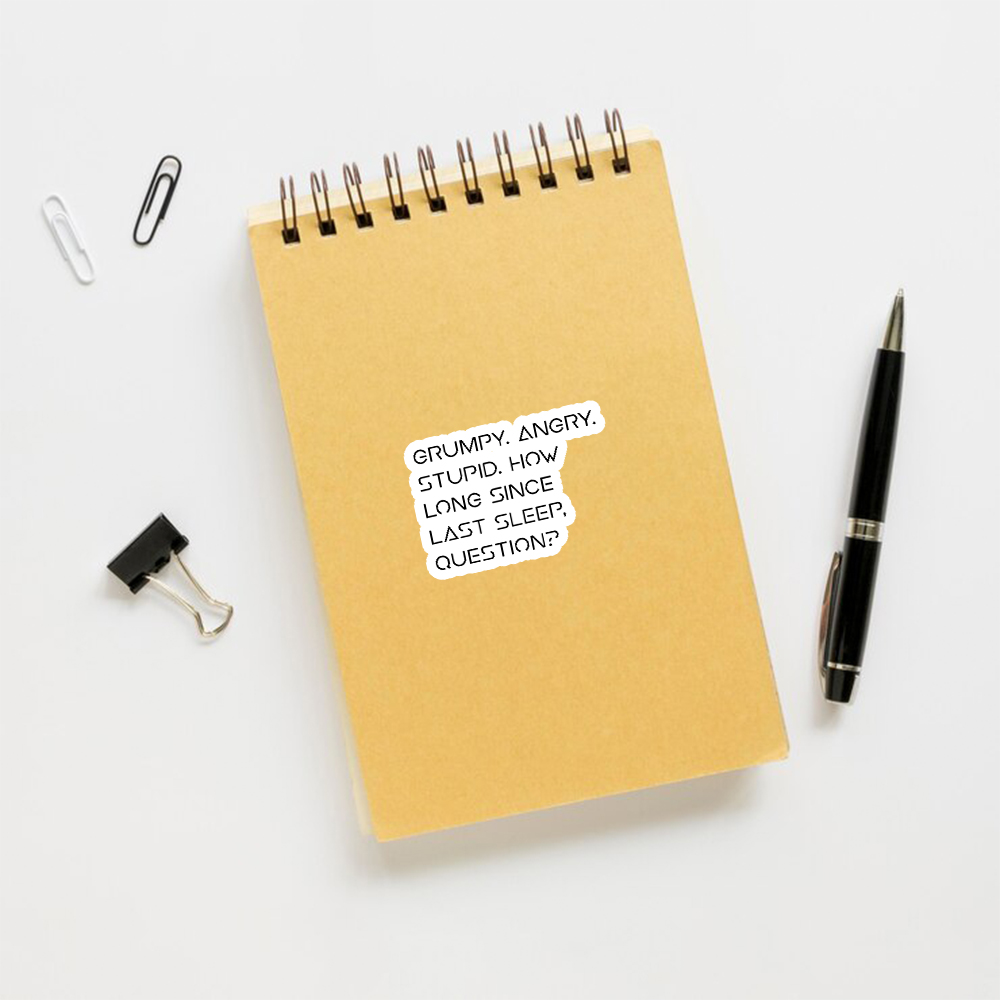 GRUMPY. ANGRY.
STUPID. HOW
LONG SINCE
LAST SLEEP,
QUESTION?